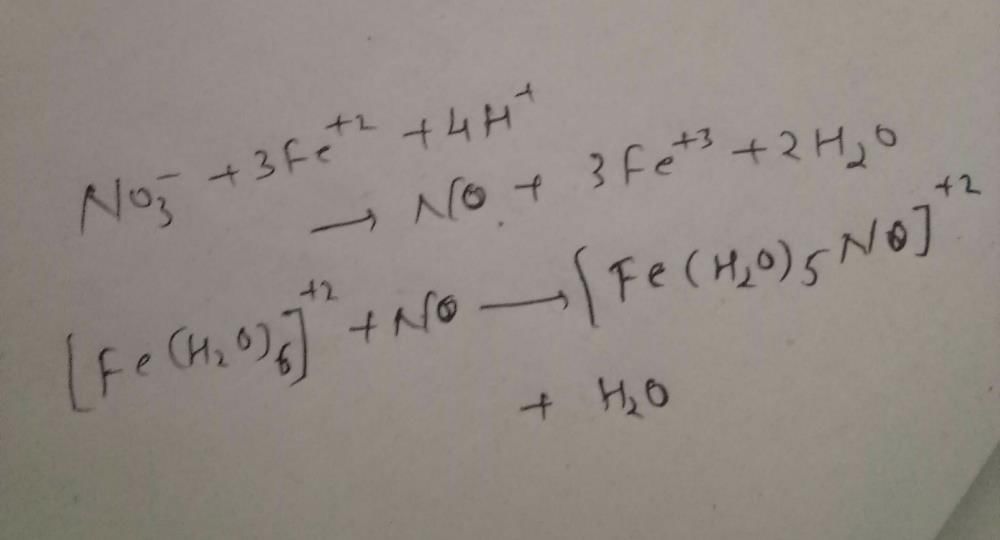 NO₃⁻ + 3Fe⁺² + 4H⁺
→ NO + 3Fe⁺³ + 2H₂O
[Fe(H₂O)₆]⁺² + NO → [Fe(H₂O)₅NO]⁺²
+ H₂O